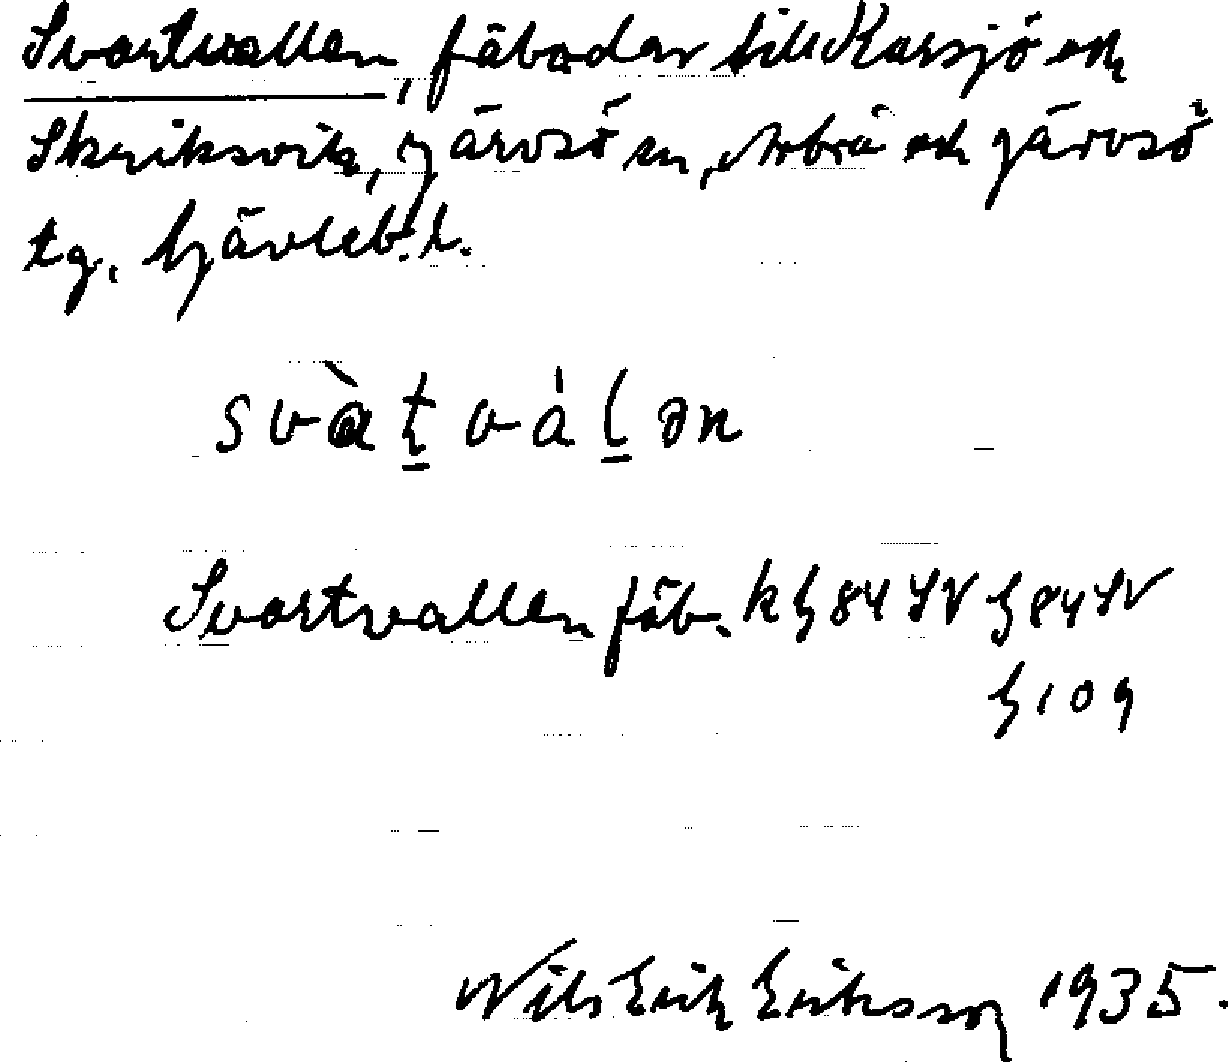 Svartvallen, fäbodar till Karsjö och
Skriksvik, Järvsö sn, Arbrå och Järvsö
tg. Gävleb. l.
svàt̲vál̲ən
Svartvallen fäb. k G 84 SV G 84 SV
G 109
Nils Erik Eriksson 1935.